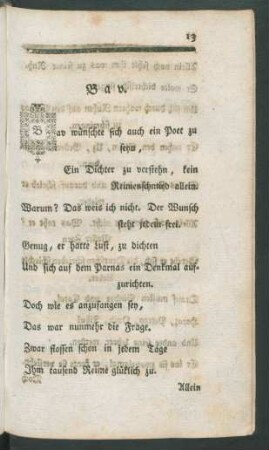 13
Bav.
Bav wünschte sich auch ein Poet zu
seyn,
Ein Dichter zu verstehn, kein
Reimenschmied allein.
Warum? Das weis ich nicht. Der Wunsch
steht jedem frei.
Genug, er hatte Lust, zu dichten
Und sich auf dem Parnas ein Denkmal auf-
zurichten.
Doch wie es anzufangen sey,
Das war nunmehr die Frage.
Zwar flossen schon in jedem Tage
Ihm tausend Reime glüklich zu.
Allein